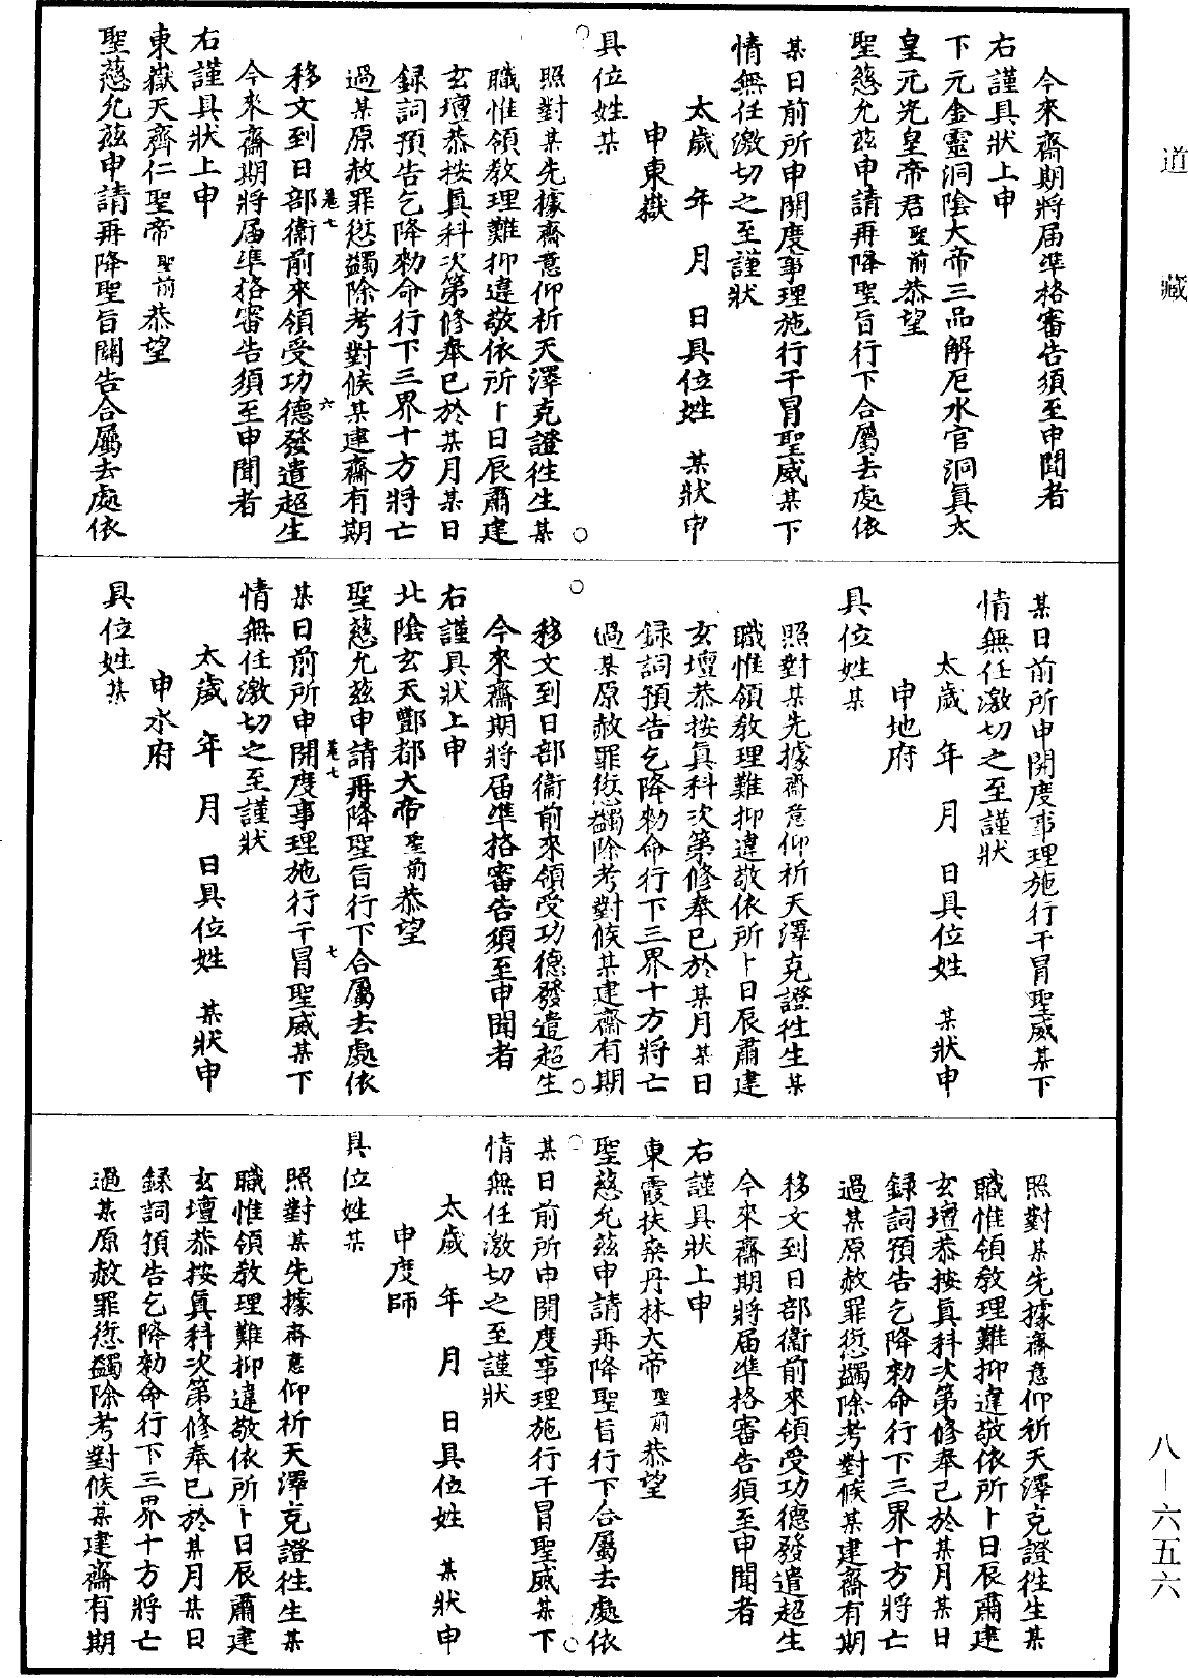 道藏
今來齋期將届準格審告須至申聞者
右謹具狀上申
下元金靈洞陰大帝三品解厄水官洞真太
皇元炁皇帝君聖前恭望
聖慈允茲申請再降聖旨行下合屬去處依
某日前所申開度事理施行干冒聖威某下
情無任激切之至謹狀
太歲　年　月　日具位姓　某狀申
申東嶽
具位姓某
照對某先據齋意仰祈天澤克證往生某
職惟領敎理難抑違敬依所卜日辰肅建
玄壇恭按眞科次第修奉已於某月某日
録詞預告乞降勑命行下三界十方將亡
過某原赦罪愆蠲除考對候某建齋有期
卷七　六
移文到日部衞前來領受功德發遣超生
今來齋期將届準格審告須至申聞者
右謹具狀上申
東嶽天齊仁聖帝聖前恭望
聖慈允茲申請再降聖旨關告合屬去處依
某日前所申開度事理施行干冒聖威某下
情無任激切之至謹狀
太歲　年　月　日具位姓　某狀申
申地府
具位姓某
照對某先據齋意仰祈天澤克證往生某
職惟領敎理難抑違敬依所卜日辰肅建
玄壇恭按眞科次第修奉已於某月某日
録詞預告乞降勑命行下三界十方將亡
過某原赦罪愆蠲除考對候某建齋有期
移文到日部衞前來領受功德發遣超生
今來齋期將届準格審告須至申聞者
右謹具狀上申
北陰玄天酆都大帝聖前恭望
聖慈允茲申請再降聖旨行下合屬去處依
卷七　七
某日前所申開度事理施行干冒聖威某下
情無任激切之至謹狀
太歲　年　月　日具位姓　某狀申
申水府
具位姓某
照對某先據齋意仰祈天澤克證往生某
職惟領敎理難抑違敬依所卜日辰肅建
玄壇恭按眞科次第修奉已於某月某日
録詞預告乞降勑命行下三界十方將亡
過某原赦罪愆蠲除考對候某建齋有期
移文到日部衞前來領受功德發遣超生
今來齋期將届準格審告須至申聞者
右謹具狀上申
東霞扶桒丹林大帝聖前恭望
聖慈允茲申請再降聖旨行下合屬去處依
某日前所申開度事理施行干冒聖威某下
情無任激切之至謹狀
太歲　年　月　日具位姓　某狀申
申度師
具位姓某
照對某先據齋意仰祈天澤克證往生某
職惟領敎理難抑違敬依所卜日辰肅建
玄壇恭按眞科次第修奉已於某月某日
録詞預告乞降勑命行下三界十方將亡
過某原赦罪愆蠲除考對候某建齋有期
八—六五六